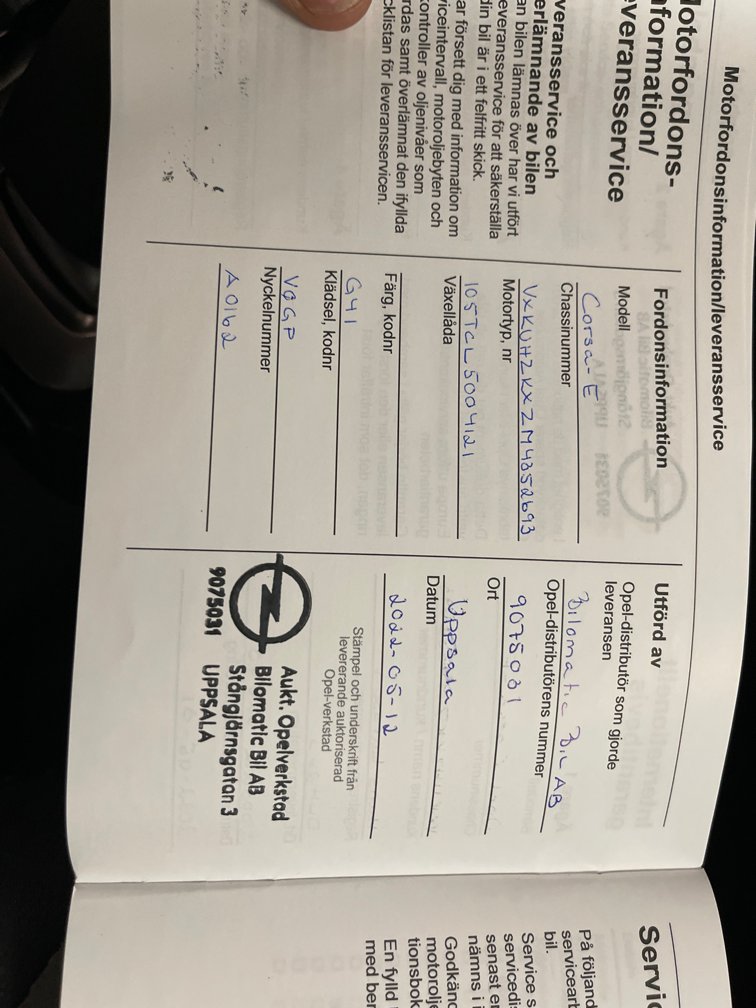 Motorfordonsinformation/leveransservice
Motorfordons-
nformation/
everansservice
veransservice och
erlämnande av bilen
an bilen lämnas över har vi utfört
everansservice för att säkerställa
din bil är i ett felfritt skick.
ar försett dig med information om
viceintervall, motoroljebyten och
kontroller av oljenivåer som
rdas samt överlämnat den ifyllda
cklistan för leveransservicen.
Fordonsinformation
Modell
Corsa-E
Chassinummer
VXKUHZKXZM4352693
Motortyp, nr
10STCL5004121
Växellåda
Färg, kodnr
G41
Klädsel, kodnr
VØGP
Nyckelnummer
A0162
Utförd av
Opel-distributör som gjorde
leveransen
Bilomatic Bil AB
Opel-distributörens nummer
9075031
Ort
Uppsala
Datum
2022-05-12
Stämpel och underskrift från
levererande auktoriserad
Opel-verkstad
Aukt. Opelverkstad
Bilomatic Bil AB
Stångjärnsgatan 3
9075031 UPPSALA
Servic
På följand
serviceart
bil.
Service s
servicedi
senast er
nämns i
Godkänd
motorolj
tionsbok
En fylld
med ber